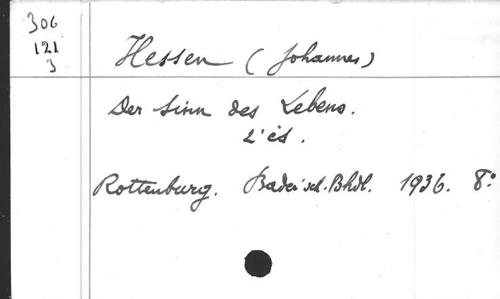 306
121
3
Hessen (Johannes)
Der Sinn des Lebens.
2' éd.
Rottenburg. Bader'sch. Bhdl. 1936. 8°